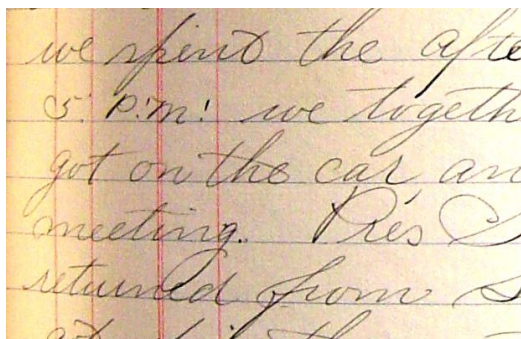 we spent the afte
5. P.M. we togeth
got on the car an
meeting. Pres S
returned from S